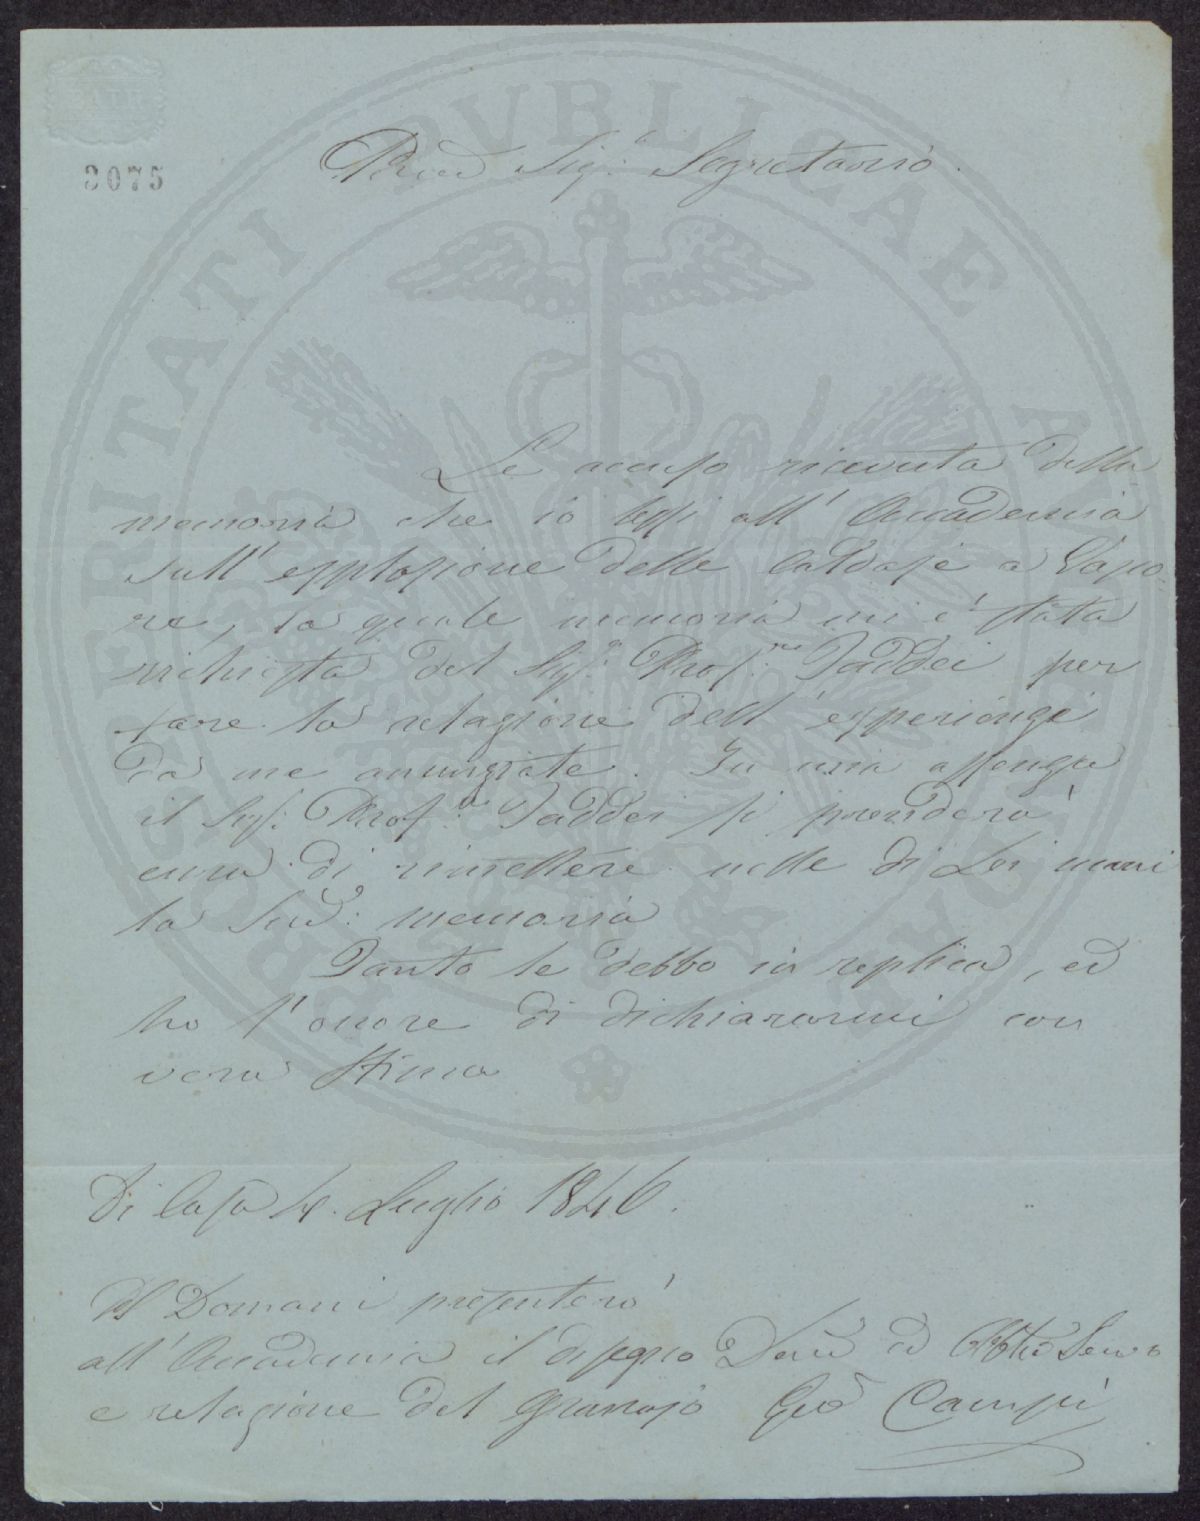 3075
Sig.r Segretario.
Le accuso ricevuta della
memoria che io lessi all' Accademia
sull' esplosione delle Caldaje a Vapo-
re, la quale memoria mi è stata
richiesta del Sig.r Prof.re Taddei per
fare la relazione dell' esperienze
da me annunziate. In mia assenza
il Sig.r Prof.re Taddei si prenderà
cura di rimettere nelle di Lei mani
la Sud: memoria
Tanto le debbo in replica, ed
ho l' onore di dichiararmi con
vera Stima
Di Casa 4. Luglio 1846.
Domani presenterò
all' Accademia il disegno Dev. ed Servo
e relazione del granajo Gio Campi
PROSPERITATI PVBLICAE AVGENDAE